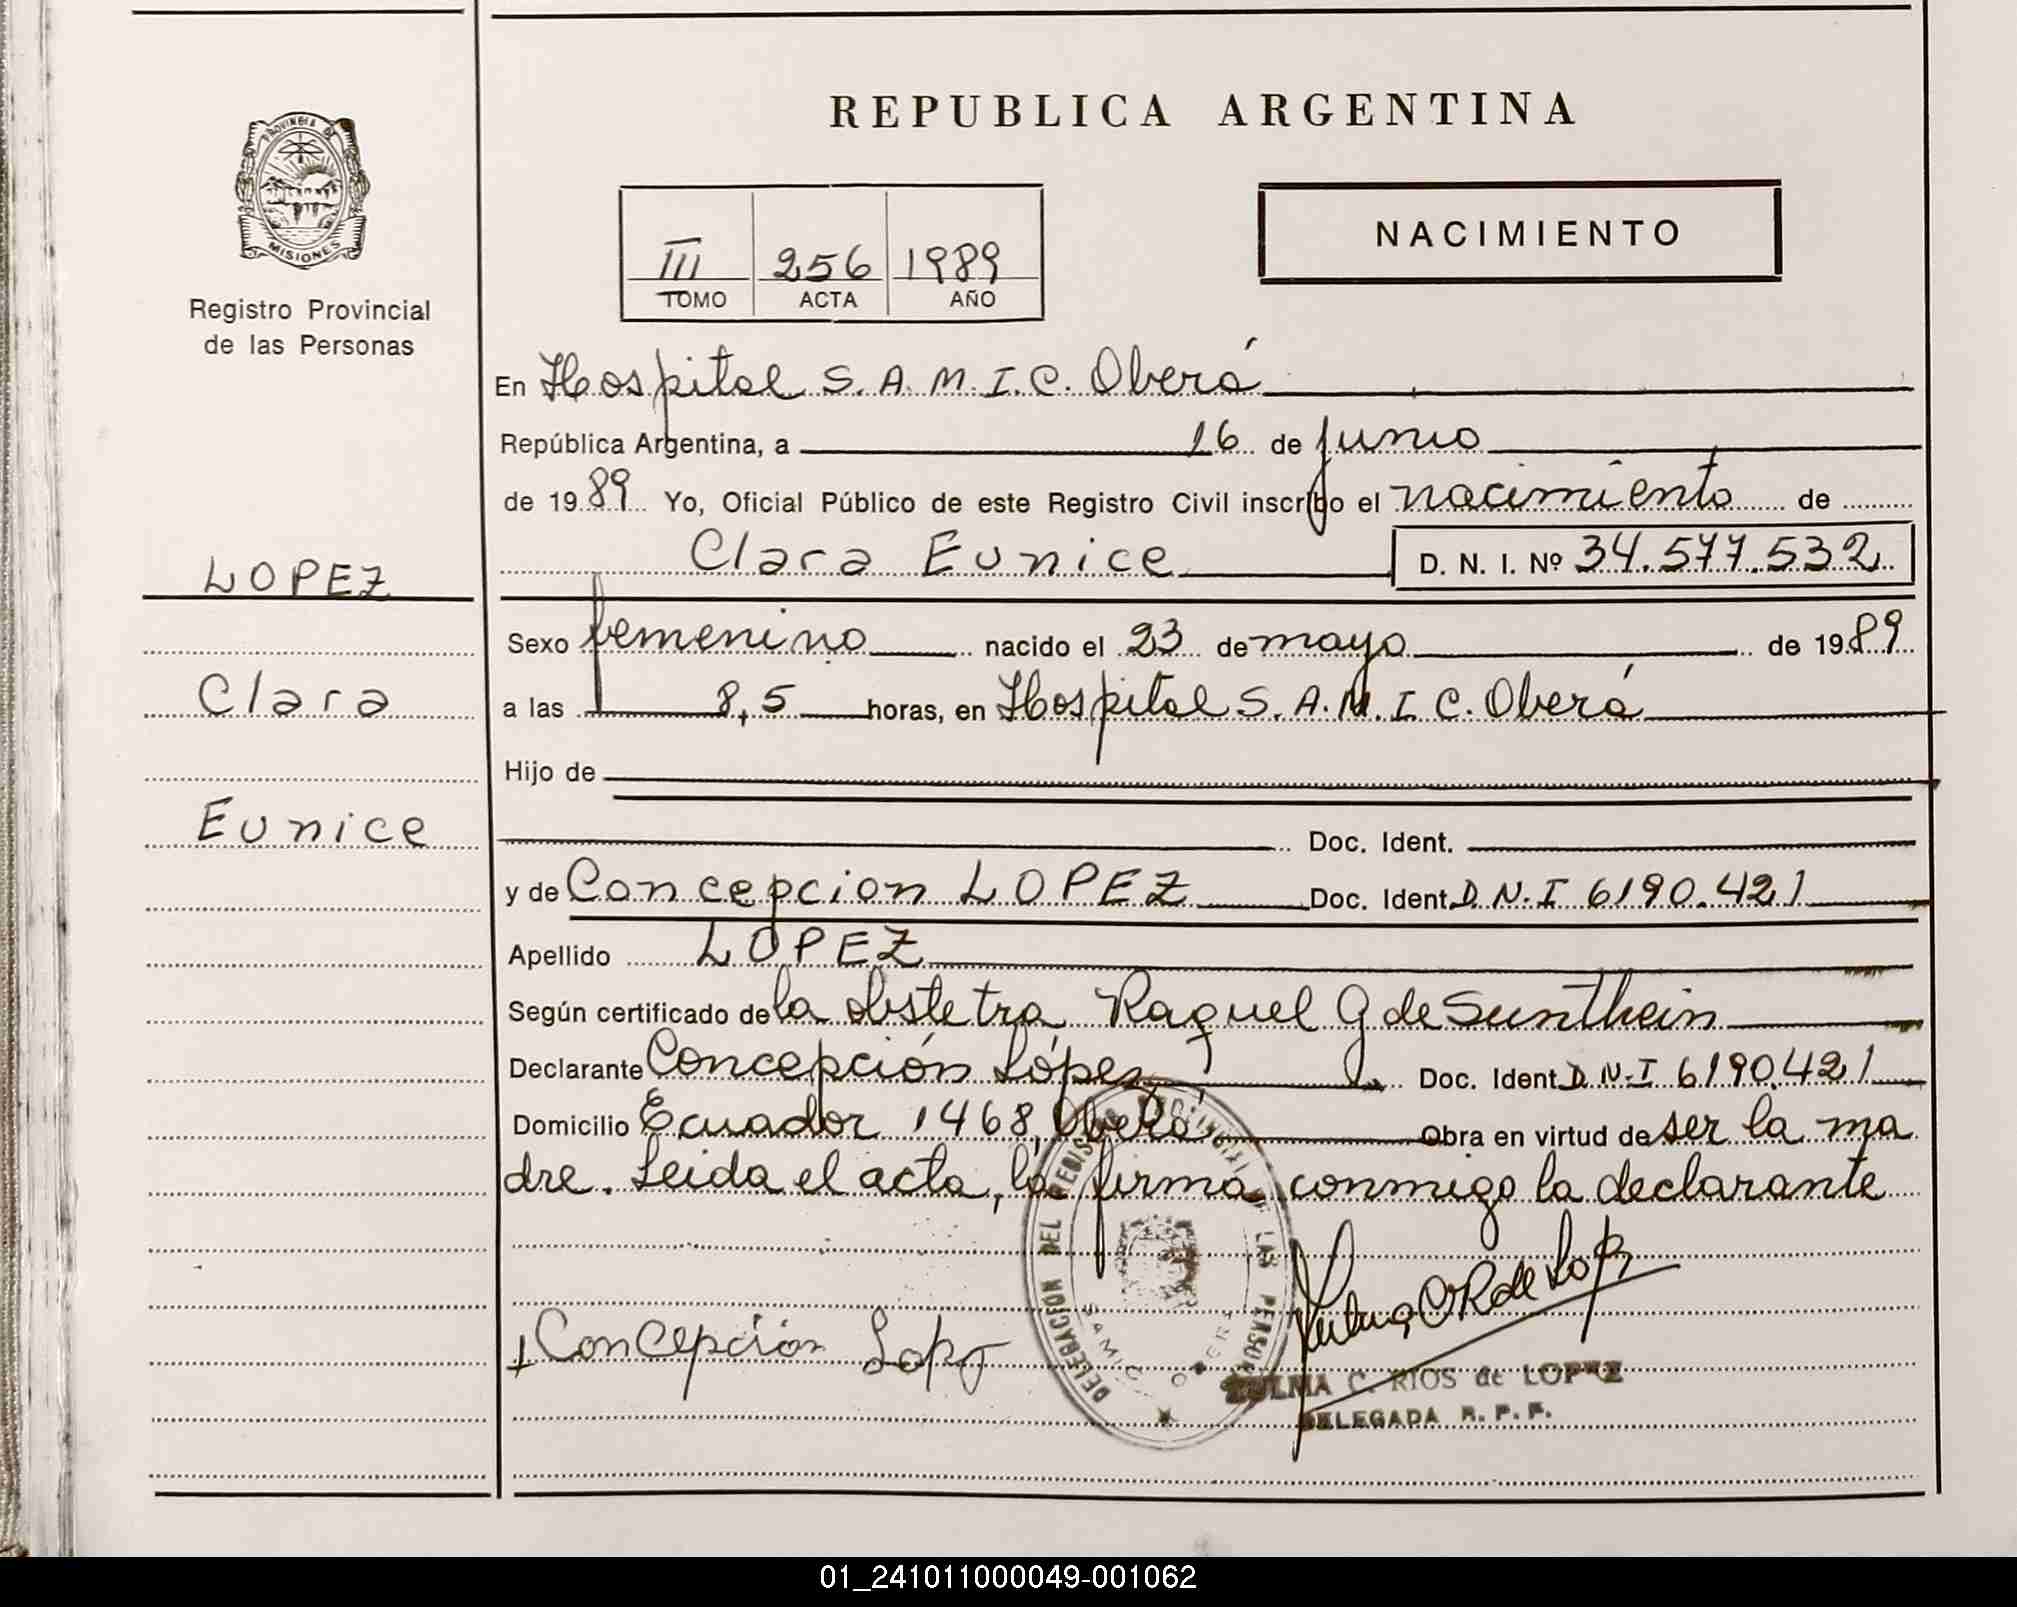 REPUBLICA ARGENTINA
PROVINCIA DE
MISIONES
Registro Provincial
de las Personas
NACIMIENTO
III 256 1989
TOMO ACTA AÑO
En Hospital S.A.M.I.C. Oberá
República Argentina, a 16 de junio
de 1989 Yo, Oficial Público de este Registro Civil inscribo el nacimiento de
Clara Eunice D. N. I. Nº 34.577.532
LOPEZ
Clara
Eunice
Sexo femenino nacido el 23 de mayo de 1989
a las 8,5 horas, en Hospital S.A.M.I.C. Oberá
Hijo de
Doc. Ident.
y de Concepcion LOPEZ Doc. Ident. D.N.I 6190.421
Apellido LOPEZ
Según certificado de la obstetra Raquel G de Sunthein
Declarante Concepción López Doc. Ident D.N.I 6190.421
Domicilio Ecuador 1468, Oberá Obra en virtud de ser la ma
dre. Leida el acta, la firma conmigo la declarante
DELEGACION DEL REGISTRO PROVINCIAL DE LAS PERSONAS
SAMIC OBERA
+Concepción Lopez
Zulma C R de Lopez
ZULMA C. RIOS de LOPEZ
DELEGADA R. P. P.
01_241011000049-001062